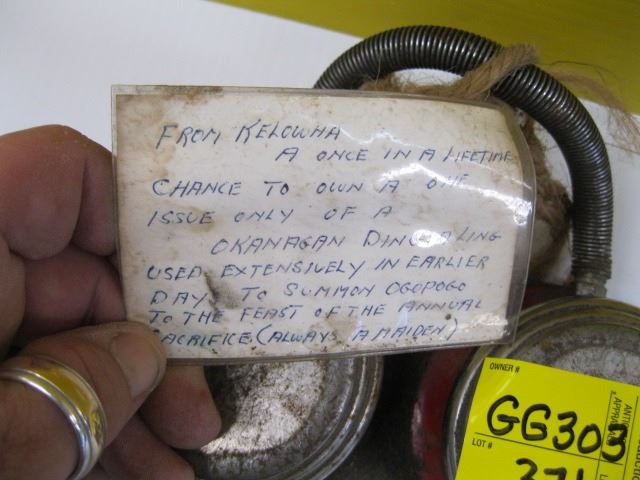 FROM KELOWNA
A ONCE IN A LIFETIME
CHANCE TO OWN A ONE
ISSUE ONLY OF A
OKANAGAN DINGALING
USED EXTENSIVELY IN EARLIER
DAYS TO SUMMON OGOPOGO
TO THE FEAST OF THE ANNUAL
SACRIFICE. (ALWAYS A MAIDEN)
OWNER #
GG305
LOT #